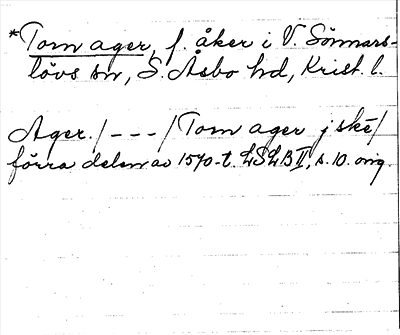 *Tom ager, f. åker i V. Sönnars-
lövs sn, S. Åsbo hd, Krist. l.
Ager. / - - - / Tom ager j ske /
förra delen av 1570-t. LSLB II, s. 10. orig.